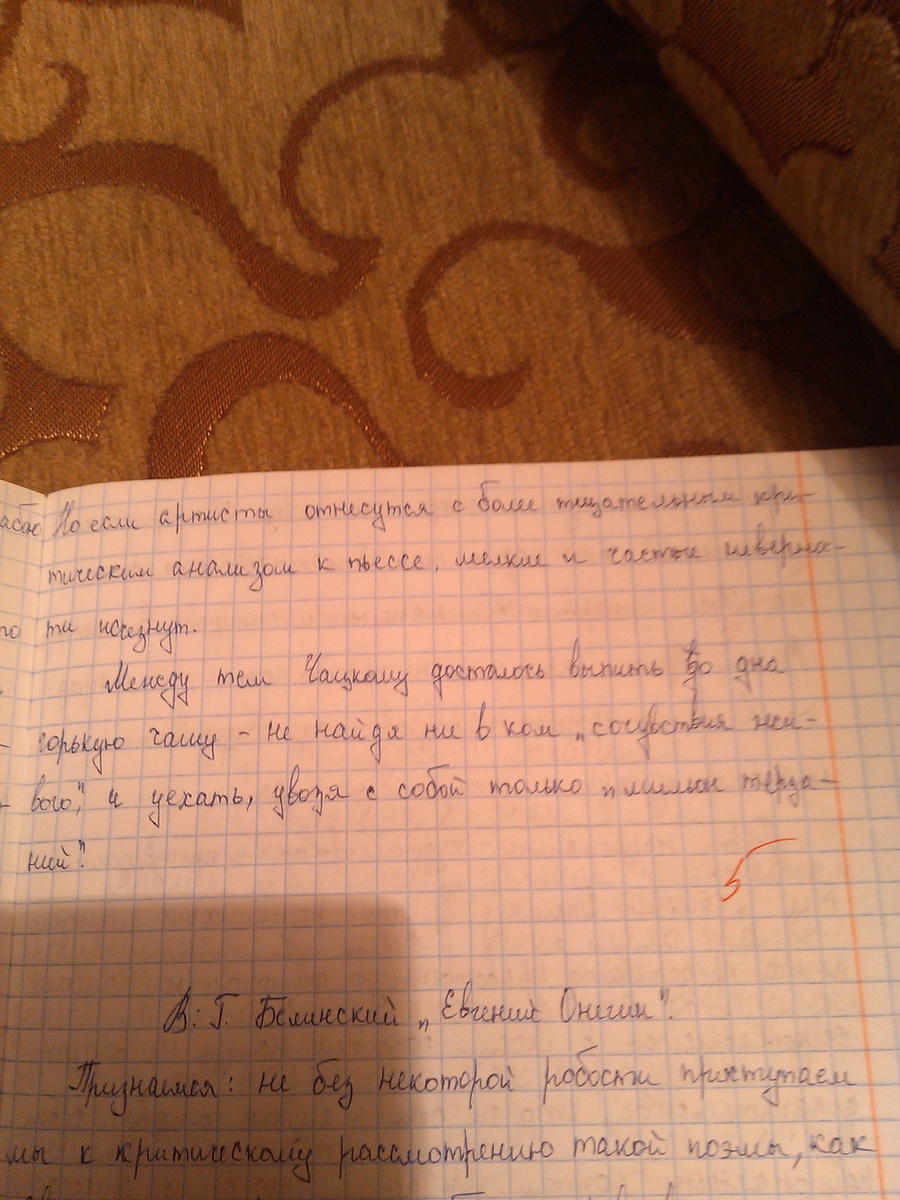 абою Но если артисты отнесутся с более тщательным кри-
тическим анализом к пьессе, мелкие и частые неверно-
го ти исчезнут.
Между тем Чацкому досталось выпить до дна
горькую чашу - не найдя ни в ком „сочувствия жи-
вого", и уехать, увозя с собой только „мильон терза-
ний".
5
В. Г. Белинский „Евгений Онегин".
Признаемся: не без некоторой робости приступаем
мы к критическому рассмотрению такой поэмы, как